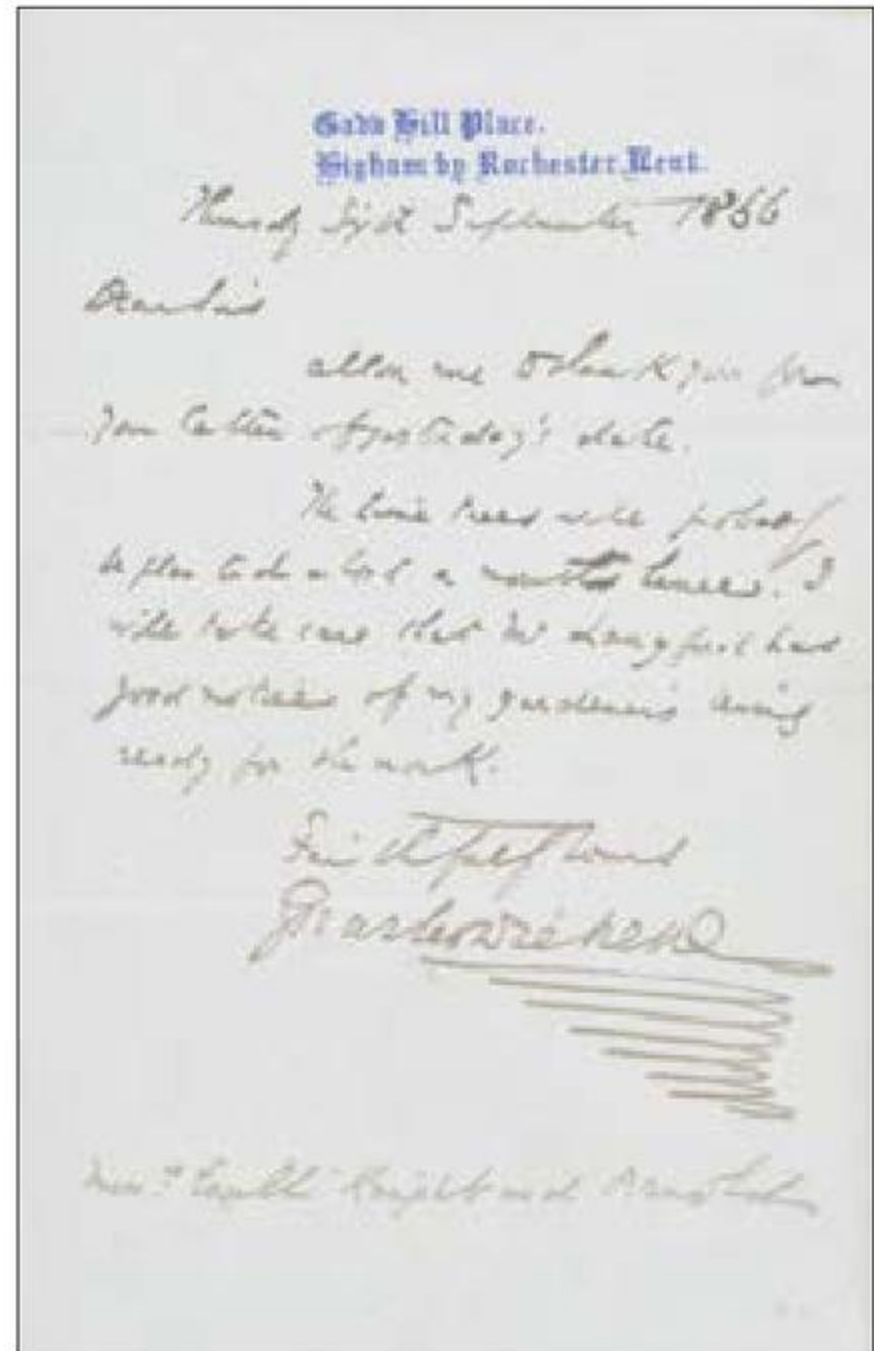 Gads Hill Place.
Higham by Rochester, Kent.
Thursday Sixth September 1866
Dear Sirs
allow me to thank you for
your letter of yesterday's date.
The lime trees will probably
be planted about a month hence. I
will take care that Mr has
good notice of my gardener's being
ready for the work.
Faithfully Yours
Charles Dickens
Knight and